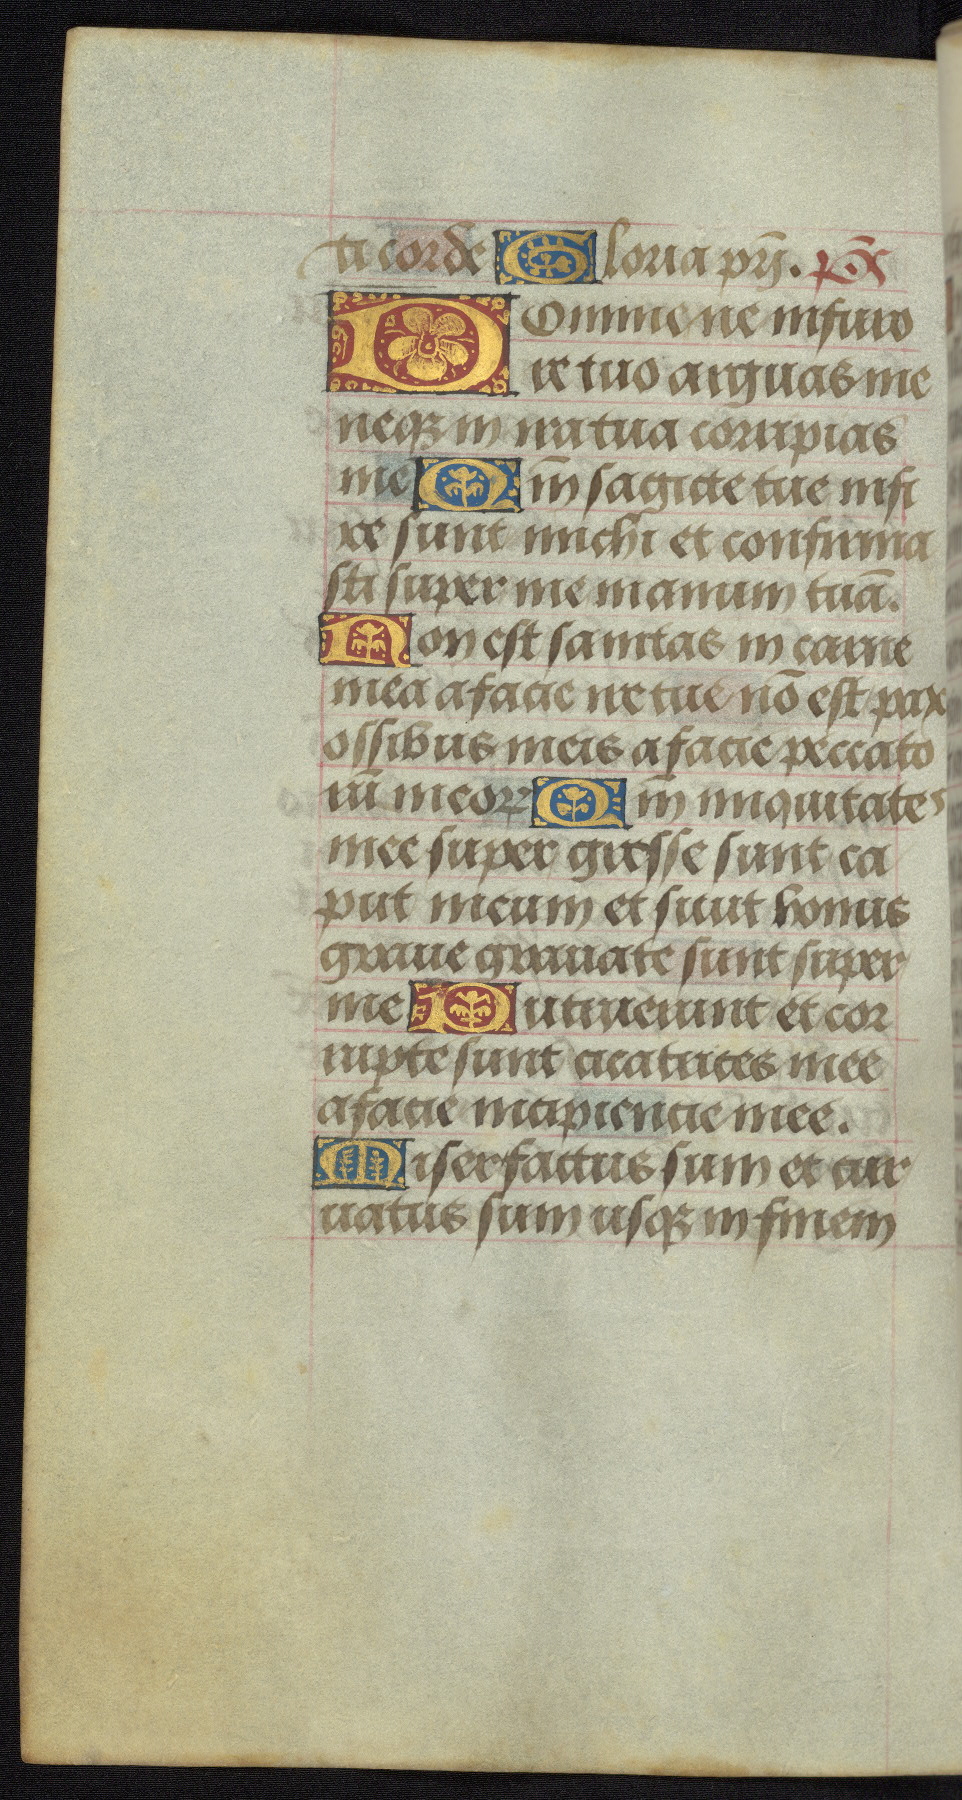 ti corde Gloria pr̄j. p̄s̄
Domine ne in furo
re tuo arguas me
neqꝫ in ira tua corripias
me Qm̄ sagitte tue infi
xe sunt michi et confirma
sti super me manum tuā.
Non est sanitas in carne
mea a facie ire tue nō est pax
ossibus meis a facie peccato
rū meoꝝ Qm̄ iniquitates
mee super gresse sunt ca
put meum et sicut honus
graue grauate sunt super
me Putruerunt et cor
rupte sunt cicatrices mee
a facie incipiencie mee.
Miser factus sum et cur
uatus sum usqꝫ in finem